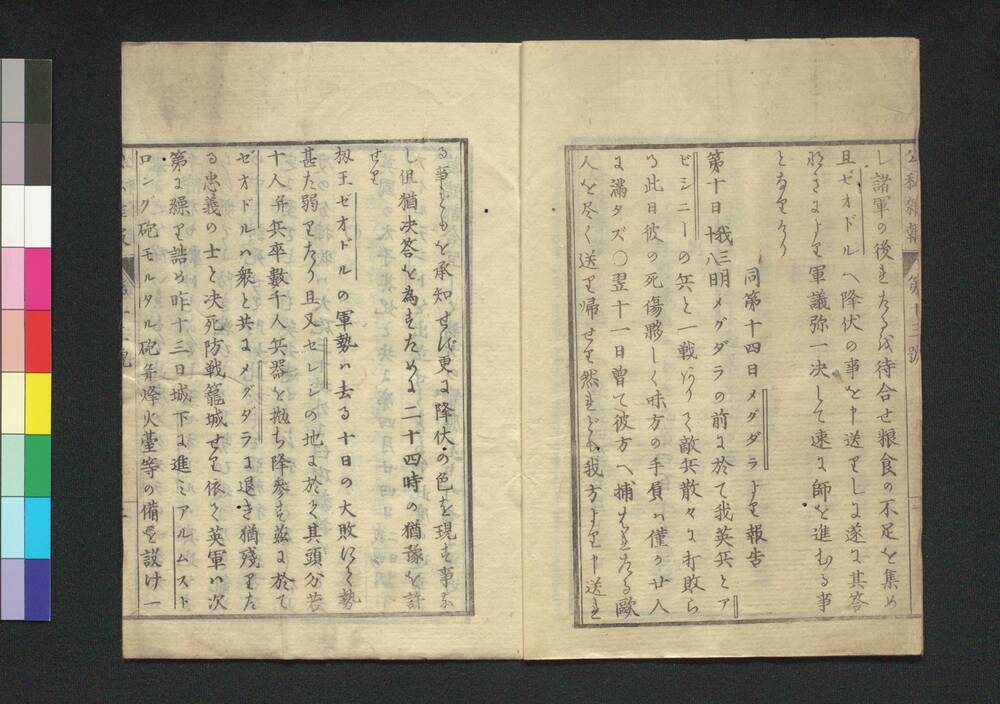 し諸軍の後れたるを待合せ粮食の不足を集め
且ゼオドルへ降伏の事を申送りしに遂に其答
なきにより軍議弥一決して速に師を進むる事
となりたり
同第十四日メグダラより報告
第十日我三月十八日メグダラの前に於て我英兵とア
ビシニーの兵と一戦ありて敵兵散々に打敗ら
る此日彼の死傷夥しく味方の手負ハ僅か廿人
に満タズ〇翌十一日曾て彼方へ捕はれたる歐
人を尽く送り帰せり然れども我方より申送れ
る事どもを承知せず更に降伏の色を現す事な
し但猶決答を為すために二十四時の猶豫を許
せり
扨王ゼオドルの軍勢ハ去る十日の大敗にて勢
甚た弱りたり且又セレシの地に於て其頭分若
十人并兵卒數千人兵器を抛ち降参す茲に於て
ゼオドルハ衆と共にメグダラに退き猶残りた
る忠義の士と决死防戦籠城せり依て英軍ハ次
第に繰り詰め昨十三日城下に進ミアルムスト
ロンク砲モルタル砲并烽火䑓等の備を設け一
第十三號